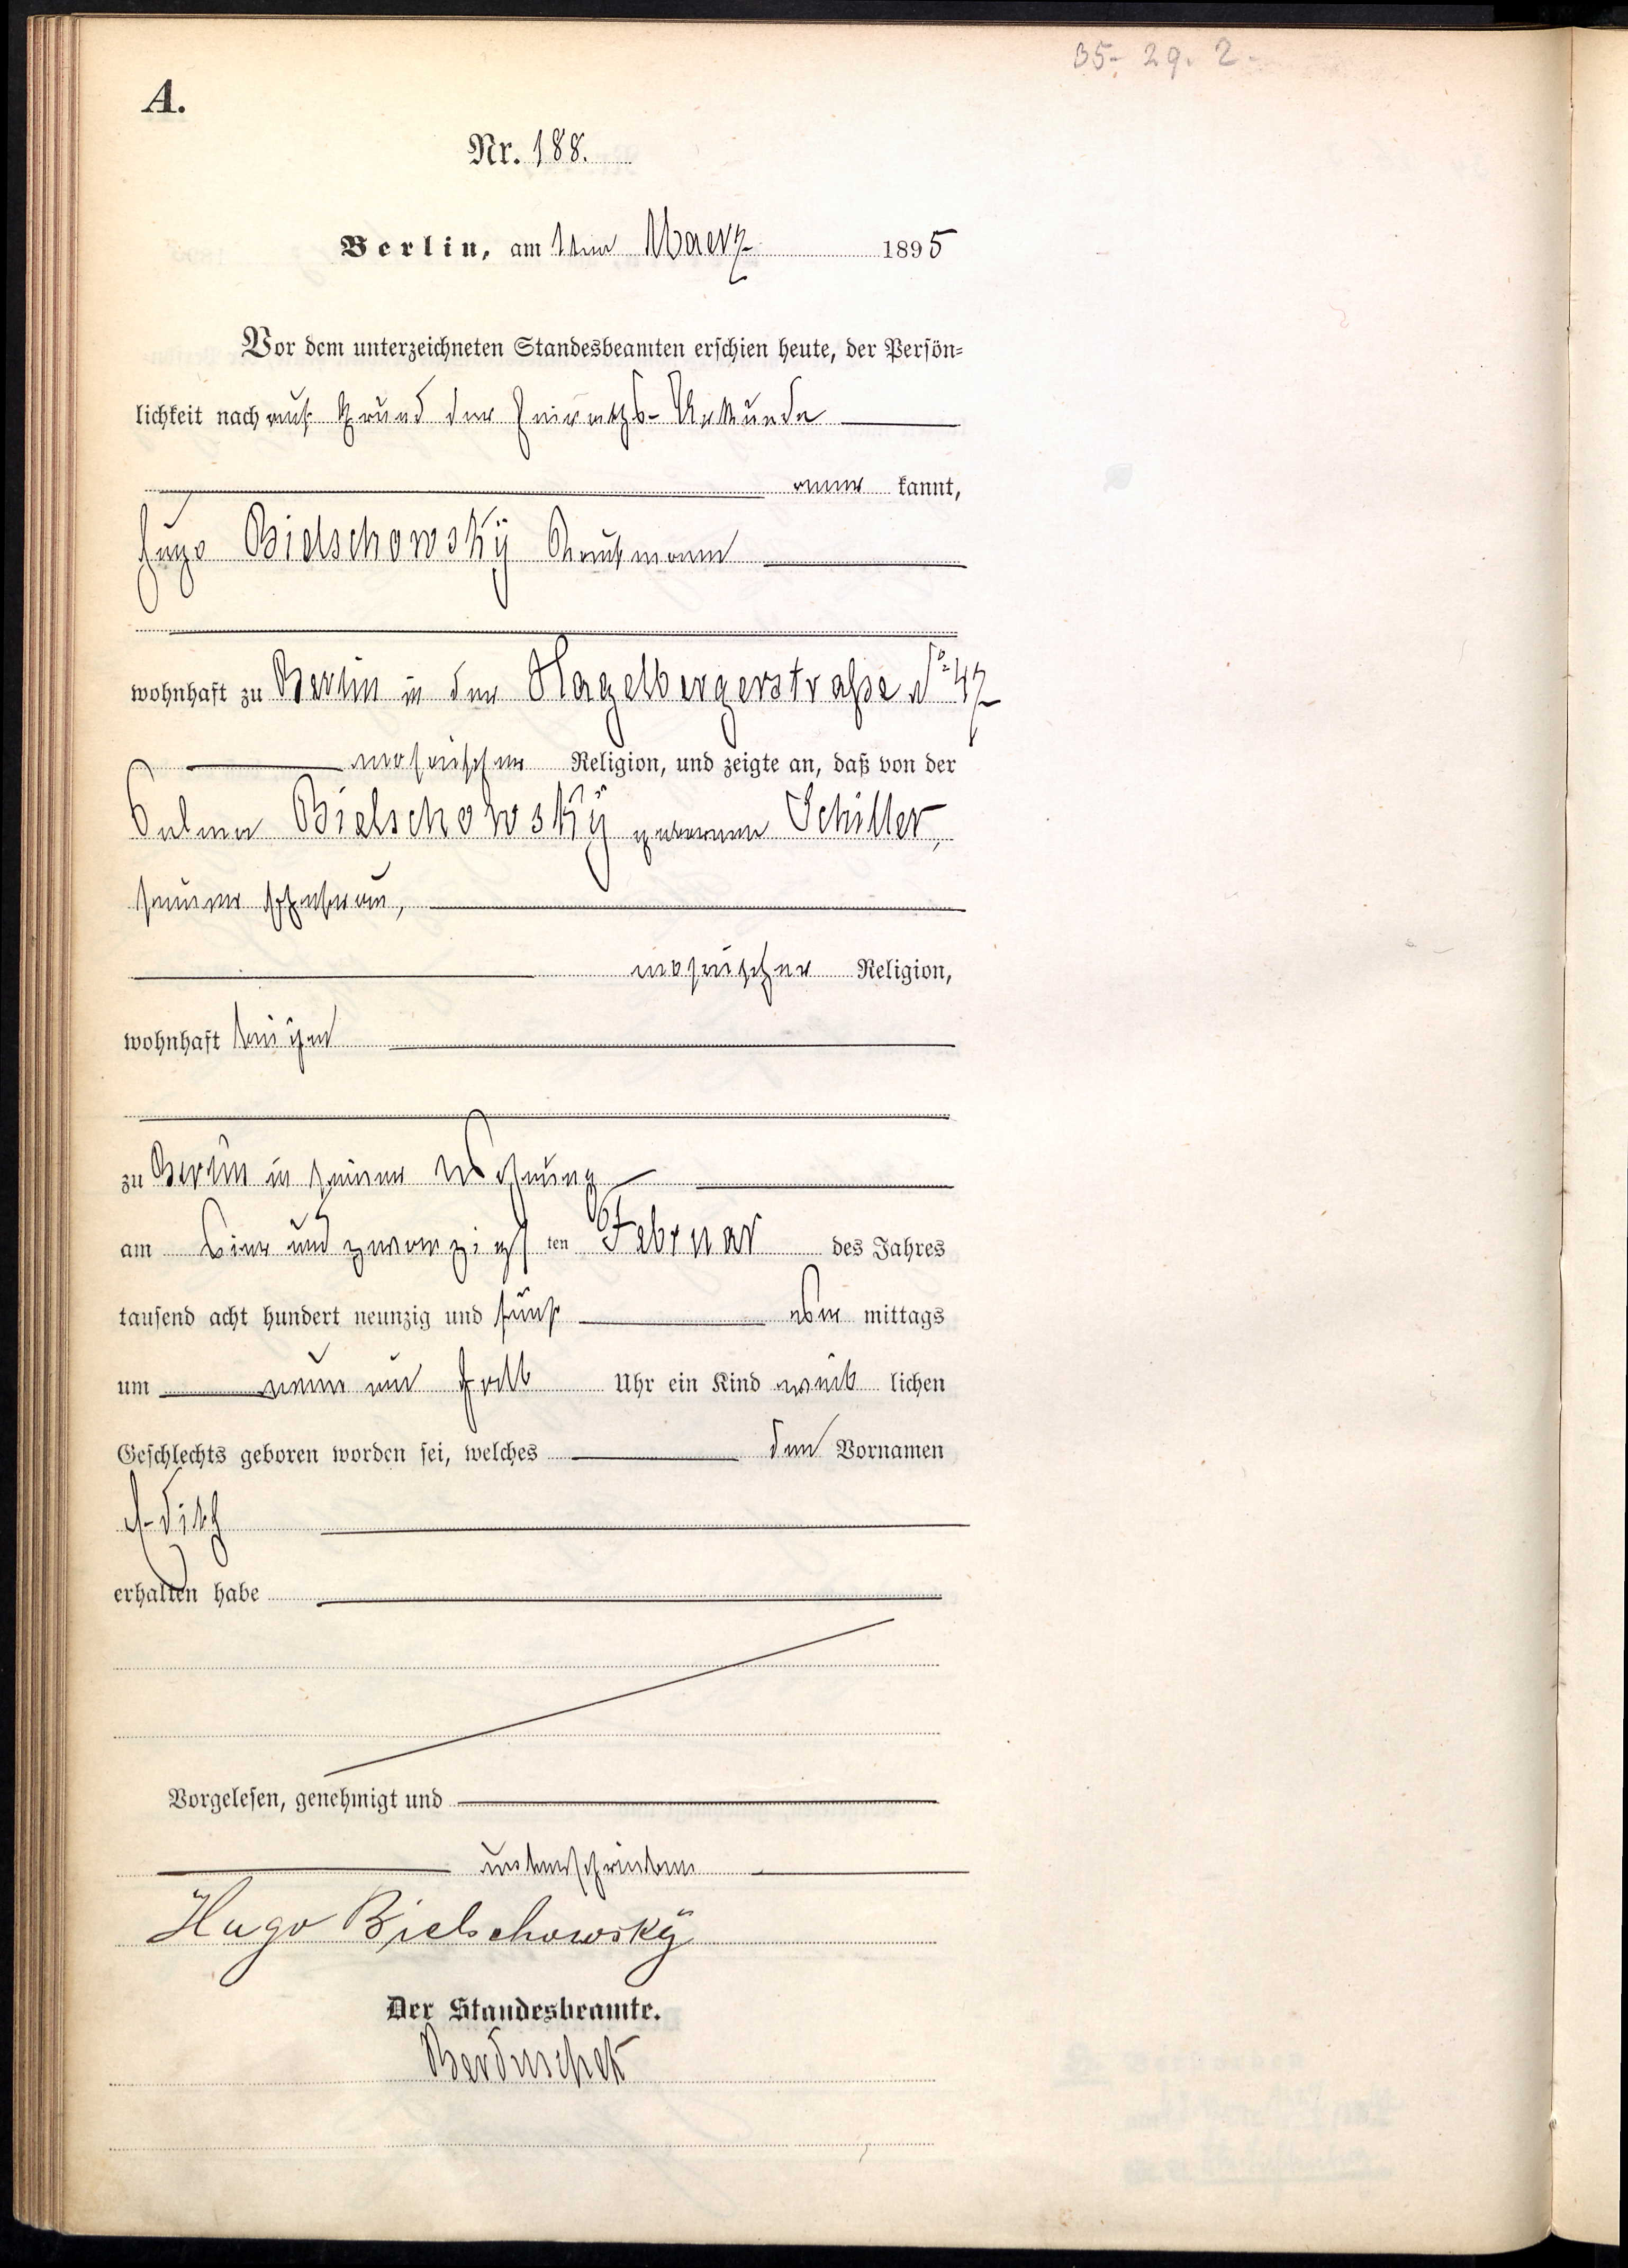 29. 2.
A.
Nr. 188.
Berlin, am 1ten Maerz 1895
Vor dem unterzeichneten Standesbeamten erschien heute, der Persön=
lichkeit nach auf Grund der Heiraths-Urkunde
aner kannt,
Hugo Bielschowskÿ Kaufmann
wohnhaft zu Berlin in der Hagelbergerstraße No 47
mosaischer Religion, und zeigte an, daß von der
Selma Bielschowskÿ geborenen Schiller,
seiner Ehefrau,
mosaischer Religion,
wohnhaft bei ihm
zu Berlin in seiner Wohnung
am und zwanzigsten Februar des Jahres
tausend acht hundert neunzig und fünf mittags
um neun ein halb Uhr ein Kind weib lichen
Geschlechts geboren worden sei, welches den Vornamen
Edith
erhalten habe
Vorgelesen, genehmigt und
unterschrieben
Hugo Bielschowskÿ
Der Standesbeamte.
Berduschek